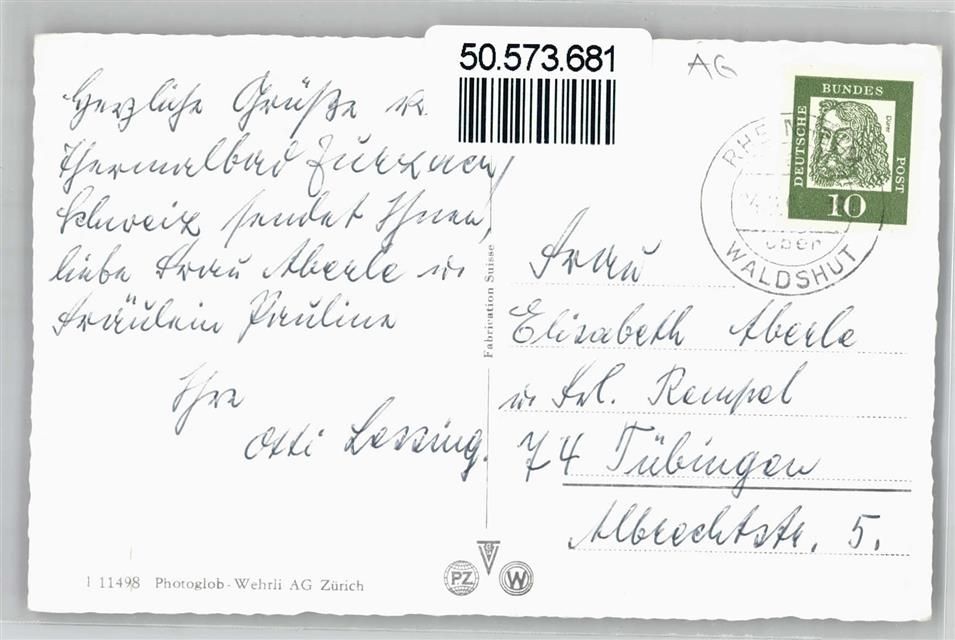 50.573.681
AG
Herzliche Grüße v.
Thermalbad Zurzach/
Schweiz sendet Ihnen,
liebe Frau Aberle u
Fräulein Pauline
Ihre
Otti Lessing.
Fabrication Suisse
DEUTSCHE BUNDES POST
Dürer
10
RHEI
über
WALDSHUT
Frau
Elisabeth Aberle
u Frl. Rempel
74 Tübingen
Albrechtstr. 5.
PZ
W
1 11498 Photoglob-Wehrli AG Zürich